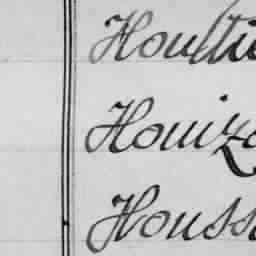 Houltie
Houiza
Houss